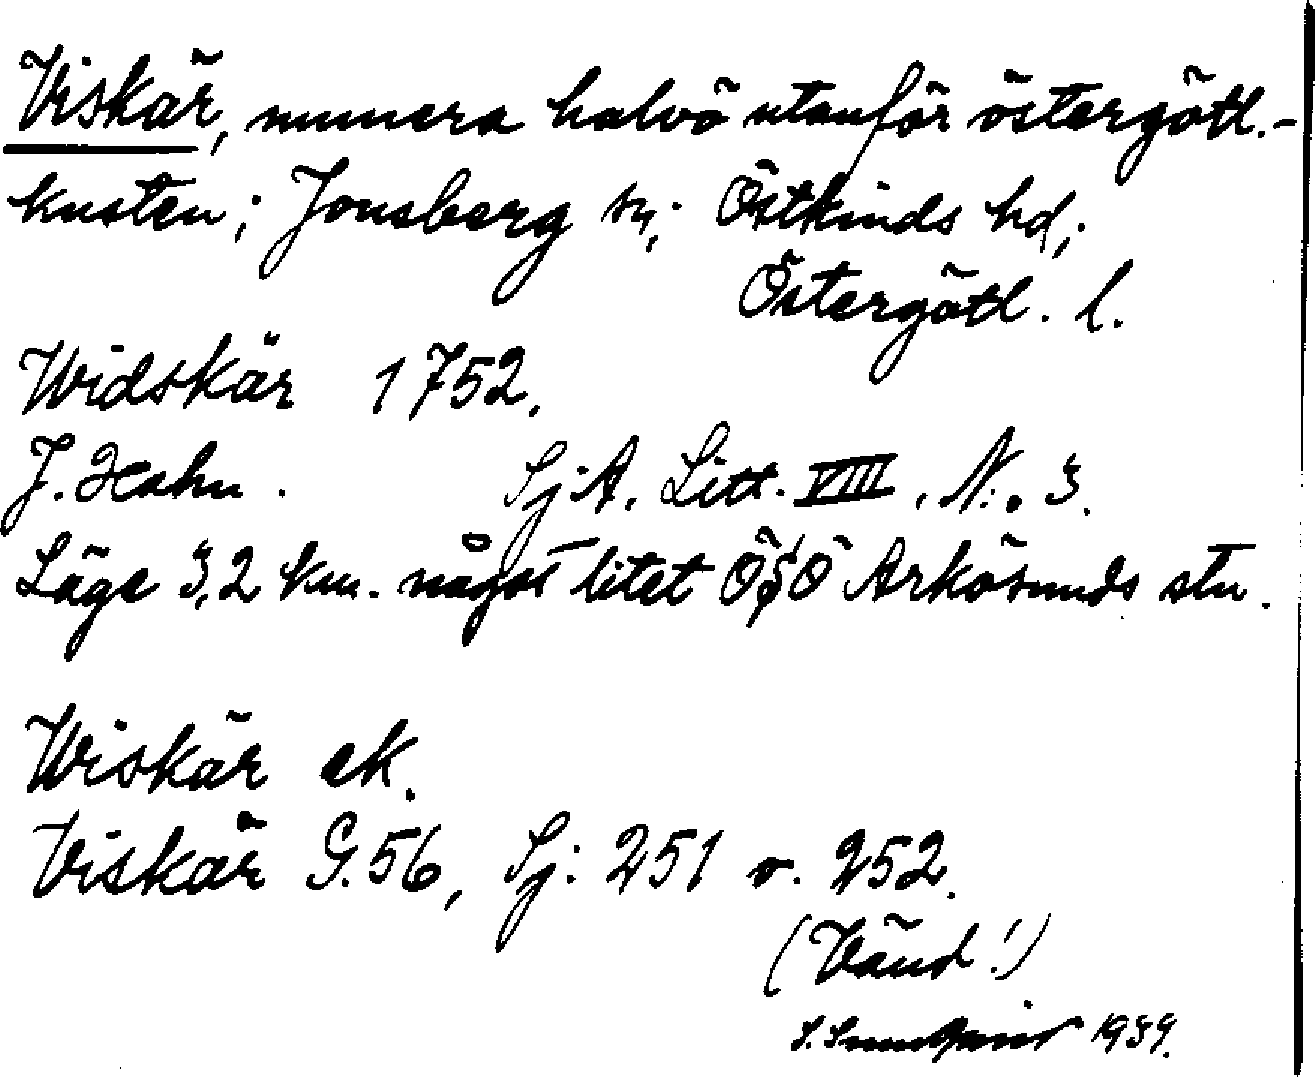 Viskär, numera halvö utanför östergötl.-
kusten; Jonsberg sn; Östkinds hd;
Östergötl. l.
Widskär 1752.
J. Hahn. SjA. Litt. VIII, N:o 3.
Läge 3,2 km. något litet ÖSÖ Arkösunds stn.
Wiskär ek.
Viskär G.56, Sj: 251 o. 252.
(Vänd!)
1939.